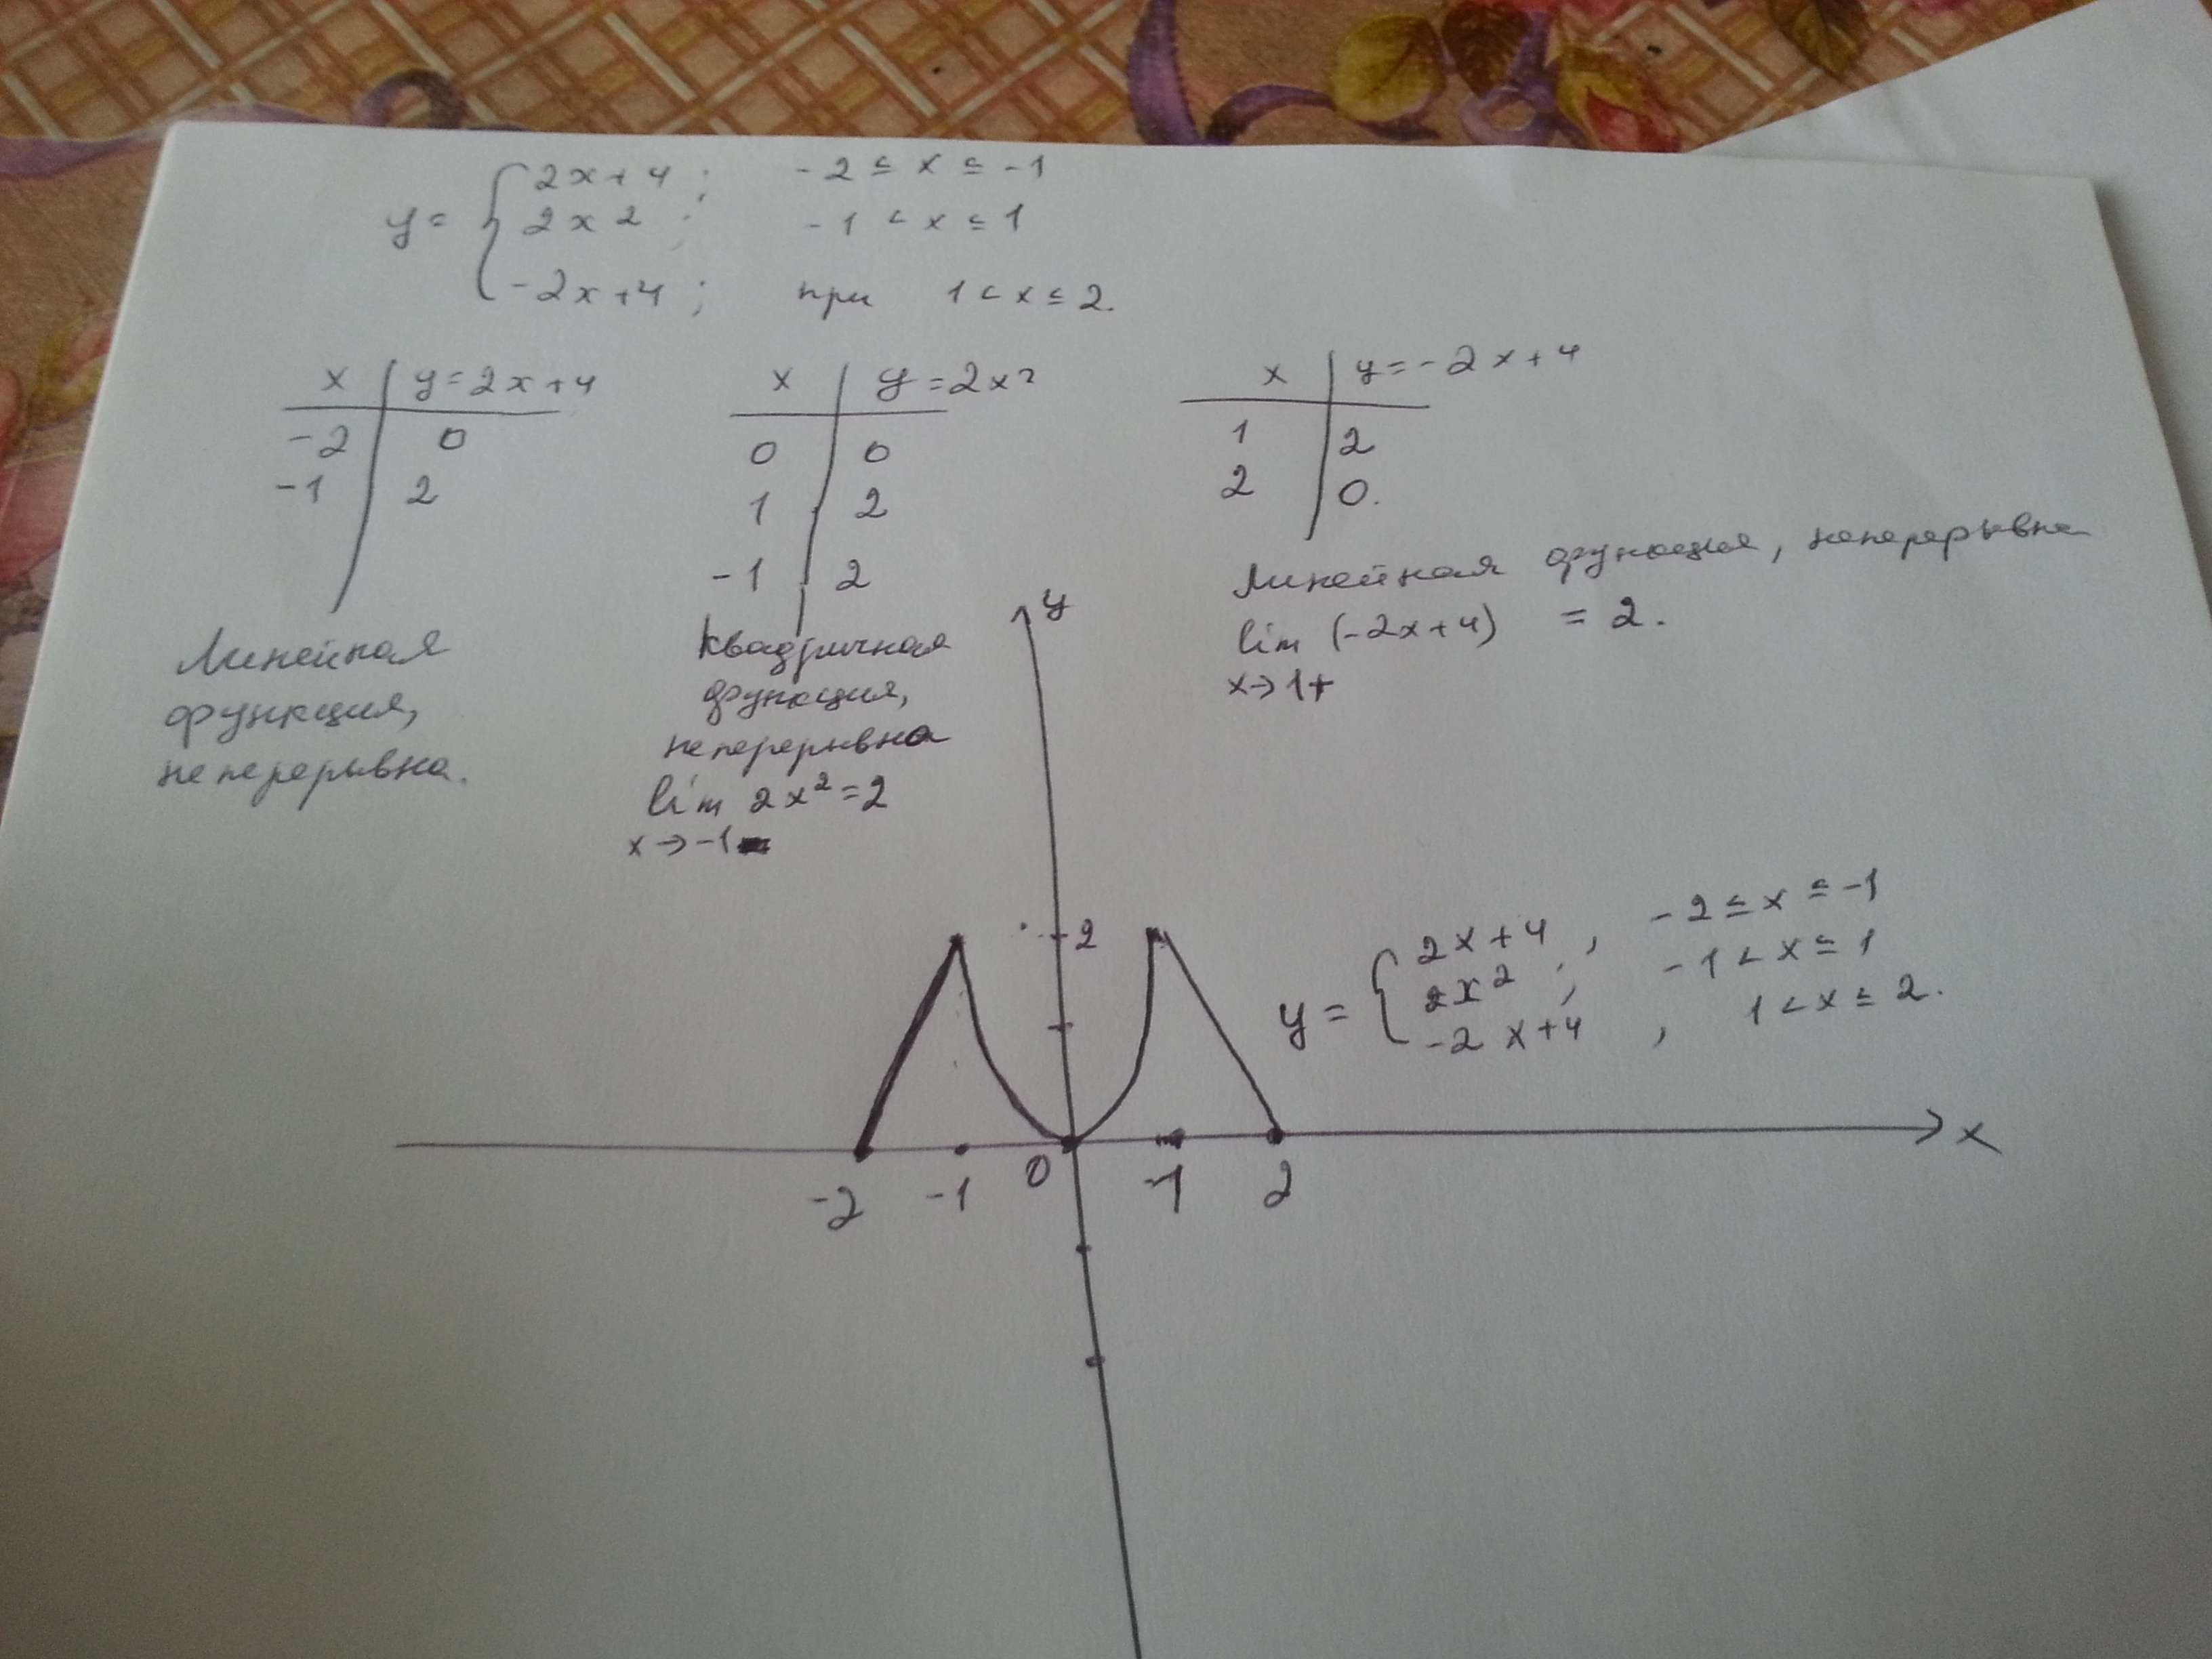 y = { 2x+4 ; -2 ≤ x ≤ -1
2x2 ; -1 < x ≤ 1
-2x+4 ; при 1 < x ≤ 2.
x | y=2x+4
-2 | 0
-1 | 2
Линейная
функция,
непрерывна.
x | y=2x2
0 | 0
1 | 2
-1 | 2
квадричная
функция,
непрерывна
lim 2x²=2
x→-1
x | y=-2x+4
1 | 2
2 | 0.
Линейная функция, неперерывна
lim (-2x+4) = 2.
x→1+
y
2
y = { 2x+4 , -2 ≤ x ≤ -1
2x² ; -1 < x ≤ 1
-2x+4 , 1 < x ≤ 2.
x
-2 -1 0 -1 2